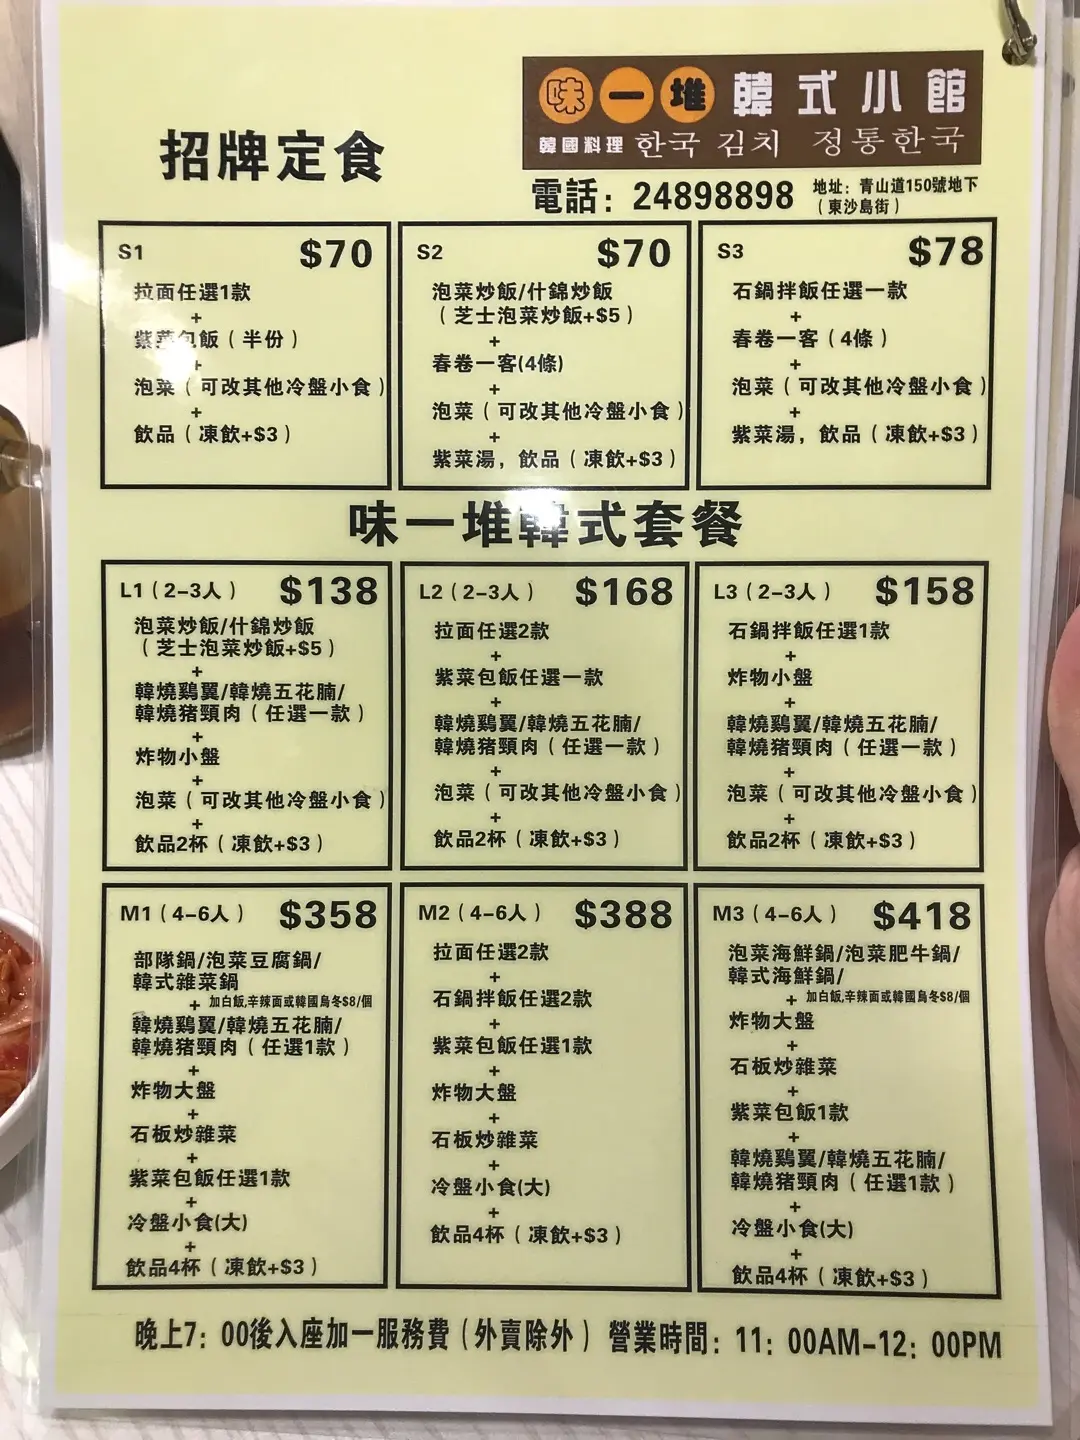 味一堆 韓式小館
韓國料理 한국 김치 정통한국
招牌定食
電話：24898898
地址：青山道150號地下
（東沙島街）
S1 $70
拉面任選1款
+
紫菜包飯（半份）
+
泡菜（可改其他冷盤小食）
+
飲品（凍飲+$3）
S2 $70
泡菜炒飯/什錦炒飯
（芝士泡菜炒飯+$5）
+
春卷一客(4條)
+
泡菜（可改其他冷盤小食）
+
紫菜湯，飲品（凍飲+$3）
S3 $78
石鍋拌飯任選一款
+
春卷一客（4條）
+
泡菜（可改其他冷盤小食）
+
紫菜湯，飲品（凍飲+$3）
味一堆韓式套餐
L1（2-3人） $138
泡菜炒飯/什錦炒飯
（芝士泡菜炒飯+$5）
+
韓燒鷄翼/韓燒五花腩/
韓燒猪頸肉（任選一款）
+
炸物小盤
+
泡菜（可改其他冷盤小食）
+
飲品2杯（凍飲+$3）
L2（2-3人） $168
拉面任選2款
+
紫菜包飯任選一款
+
韓燒鷄翼/韓燒五花腩/
韓燒猪頸肉（任選一款）
+
泡菜（可改其他冷盤小食）
+
飲品2杯（凍飲+$3）
L3（2-3人） $158
石鍋拌飯任選1款
+
炸物小盤
+
韓燒鷄翼/韓燒五花腩/
韓燒猪頸肉（任選一款）
+
泡菜（可改其他冷盤小食）
+
飲品2杯（凍飲+$3）
M1（4-6人） $358
部隊鍋/泡菜豆腐鍋/
韓式雜菜鍋
+ 加白飯,辛辣面或韓國烏冬$8/個
韓燒鷄翼/韓燒五花腩/
韓燒猪頸肉（任選1款）
+
炸物大盤
+
石板炒雜菜
+
紫菜包飯任選1款
+
冷盤小食(大)
+
飲品4杯（凍飲+$3）
M2（4-6人） $388
拉面任選2款
+
石鍋拌飯任選2款
+
紫菜包飯任選1款
+
炸物大盤
+
石板炒雜菜
+
冷盤小食(大)
+
飲品4杯（凍飲+$3）
M3（4-6人） $418
泡菜海鮮鍋/泡菜肥牛鍋/
韓式海鮮鍋/
+ 加白飯,辛辣面或韓國烏冬$8/個
炸物大盤
+
石板炒雜菜
+
紫菜包飯1款
+
韓燒鷄翼/韓燒五花腩/
韓燒猪頸肉（任選1款）
+
冷盤小食(大)
+
飲品4杯（凍飲+$3）
晚上7：00後入座加一服務費（外賣除外）營業時間：11：00AM-12：00PM